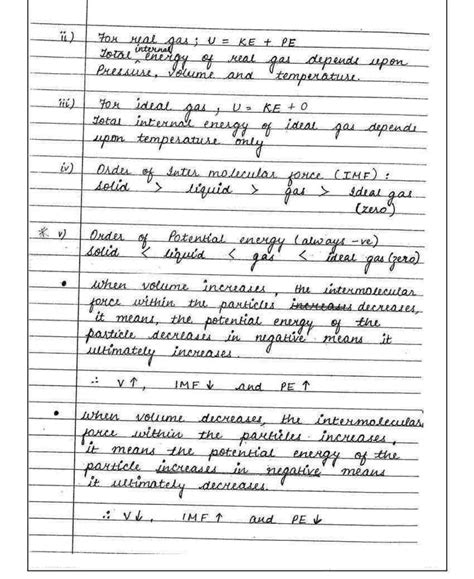 ii) For real gas; U = KE + PE
Total internal energy of real gas depends upon
Pressure, volume and temperature.
iii) For ideal gas, U = KE + 0
Total internal energy of ideal gas depends
upon temperature only
iv) Order of Inter molecular force (IMF) :
solid > liquid > gas > Ideal gas
(zero)
* v) Order of Potential energy (always -ve)
solid < liquid < gas < ideal gas (zero)
• when volume increases, the intermolecular
force within the particles increases decreases,
it means, the potential energy of the
particle decreases in negative means it
ultimately increases.
∴ V↑, IMF↓ and PE↑
• when volume decreases, the intermolecular
force within the particles increases,
it means the potential energy of the
particle increases in negative means
it ultimately decreases.
∴ V↓, IMF↑ and PE↓